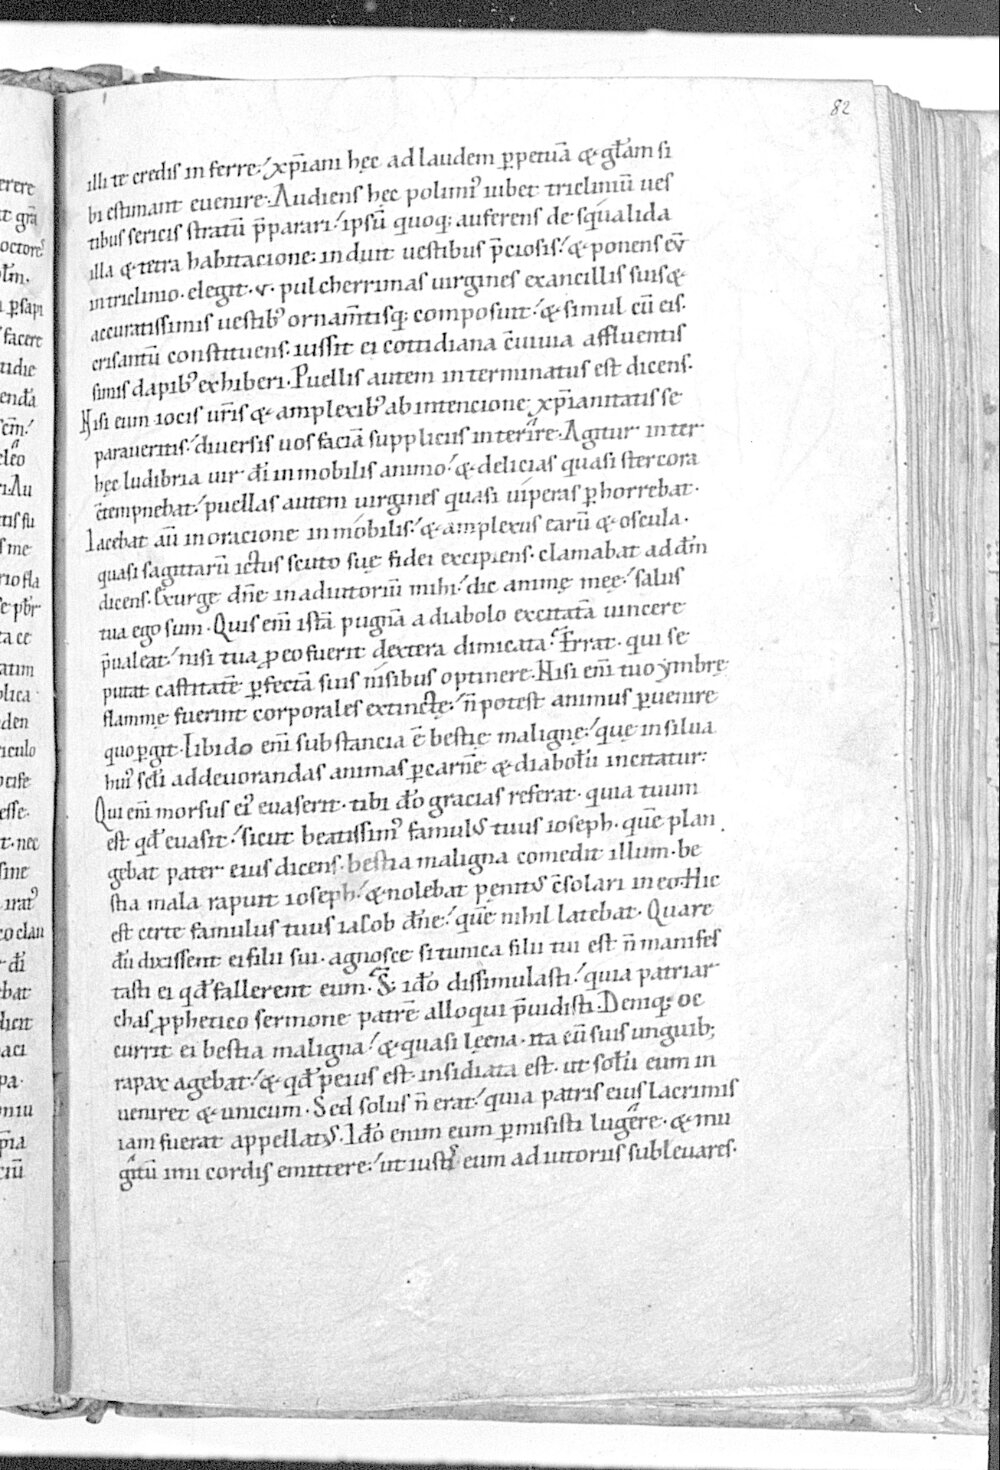 82
illi te credis inferre ⁊ xp̄iani hęc ad laudem ꝑpetuā & gl̄am si
bi estimant euenire. Audiens hęc polimiꝰ iubet tricliniū ues
tibus sericis stratū p̄parari ⁊ ipsū quoq; auferens de squalida
illa & tetra habitacione: induit uestibus p̄ciosis ⁊ & ponens eū
in triclinio. elegit .v. pulcherrimas uirgines ex ancillis suis &
accuratissimis uestibꝰ ornam̄tisq; composuit ⁊ & simul cū eis.
crisantū constituens. iussit ei cottidiana c̄uiuia affluentis
simis dapibꝰ exhiberi. Puellis autem interminatus est dicens.
Nisi eum iocis ur̄is & amplexibꝰ ab intencione xp̄ianitatis se
paraueritis ⁊ diuersis uos faciā suppliciis interire. Agitur inter
hęc ludibria uir dī inmobilis animo ⁊ & delicias quasi stercora
c̄tempnebat ⁊ puellas autem uirgines quasi uiperas ꝑhorrebat.
Iacebat aū in oracione inmobilis ⁊ & amplexus earū & oscula.
quasi sagittarū ictus scuto suę fidei excipiens. clamabat ad dn̄m
dicens. Exurge dn̄e in adiutoriū mihi ⁊ dic animę meę ⁊ salus
tua ego sum. Quis eni istā pugnā a diabolo excitatā uincere
p̄ualeat ⁊ nisi tua ꝓ eo fuerit dextera dimicata. Errat. qui se
putat castitatē ꝑfectā suis nisibus optinere. Nisi eni tuo ymbre
flammę fuerint corporales extinctę ⁊ n̄ potest animus ꝑuenire
quo ꝑgit. Libido eni substancia ē bestię malignę ⁊ que in silua
huiꝰ scl̄i ad deuorandas animas ꝑ carnē & diabolū incitatur:
Qui eni morsus eiꝰ euaserit. tibi dō gracias referat. quia tuum
est qd̄ euasit ⁊ sicut beatissimꝰ famulꝰ tuus ioseph. quē plan
gebat pater eius dicens. bestia maligna comedit illum. be
stia mala rapuit ioseph ⁊ & nolebat penitꝰ c̄solari in eo. Hic
est certe famulus tuus iacob dn̄e ⁊ quē nihil latebat. Quare
dū dixissent ei filii sui. agnosce si tunica filii tui est n̄ manifes
tasti ei qd̄ fallerent eum. S; idō dissimulasti ⁊ quia patriar
chas ꝓphetico sermone patrē alloqui p̄uidisti. Deniq; oc
currit ei bestia maligna ⁊ & quasi leena. ita eū suis unguib;
rapax agebat ⁊ & qd̄ peius est. insidiata est. ut solū eum in
ueniret & unicum. Sed solus n̄ erat ⁊ quia patris eius lacrimis
iam fuerat appellatꝰ. Idō enim eum ꝑmisisti lugere. & mu
gitū imi cordis emittere ⁊ ut iustꝰ eum adiutoriis subleuares.